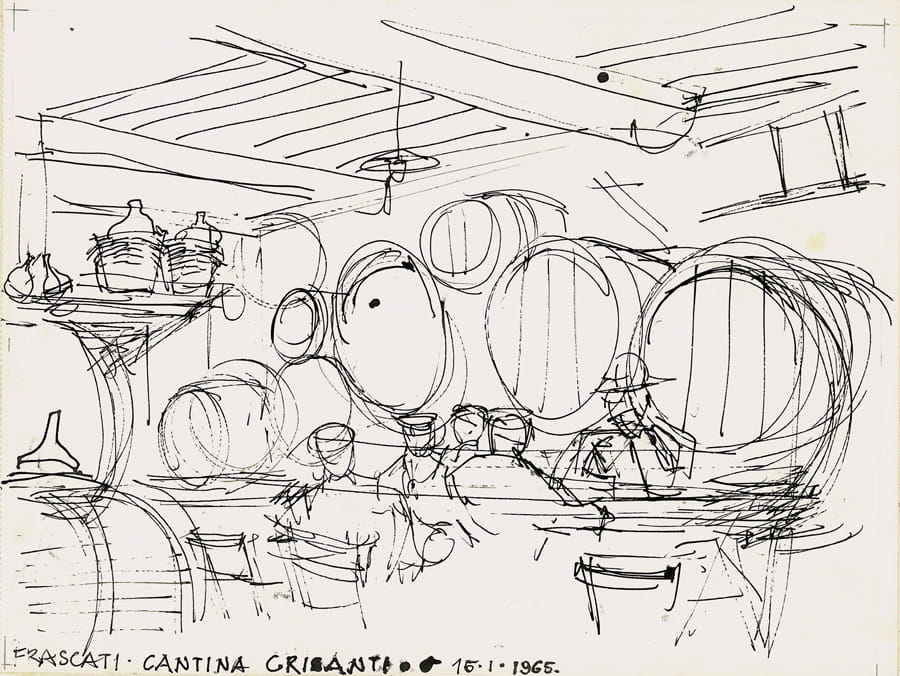 FRASCATI · CANTINA GRISANTI · 15·1·1965.